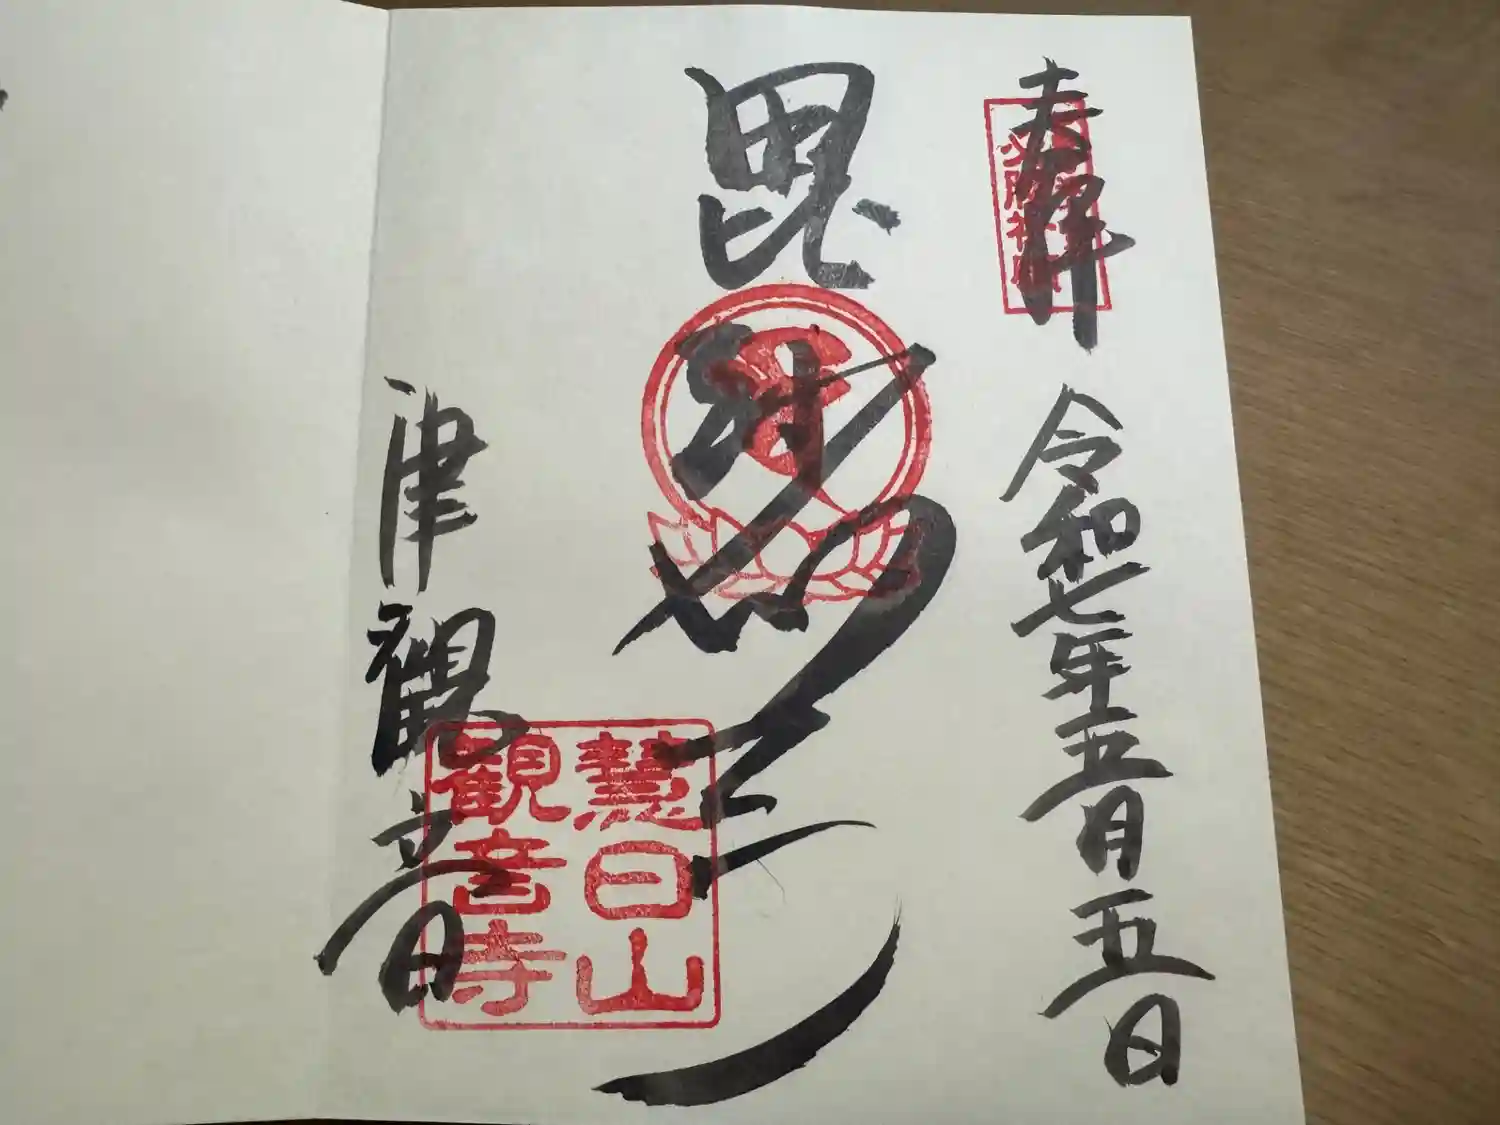 奉拝 令和七年五月五日
毘沙門天
津観音
慧日山
観音寺